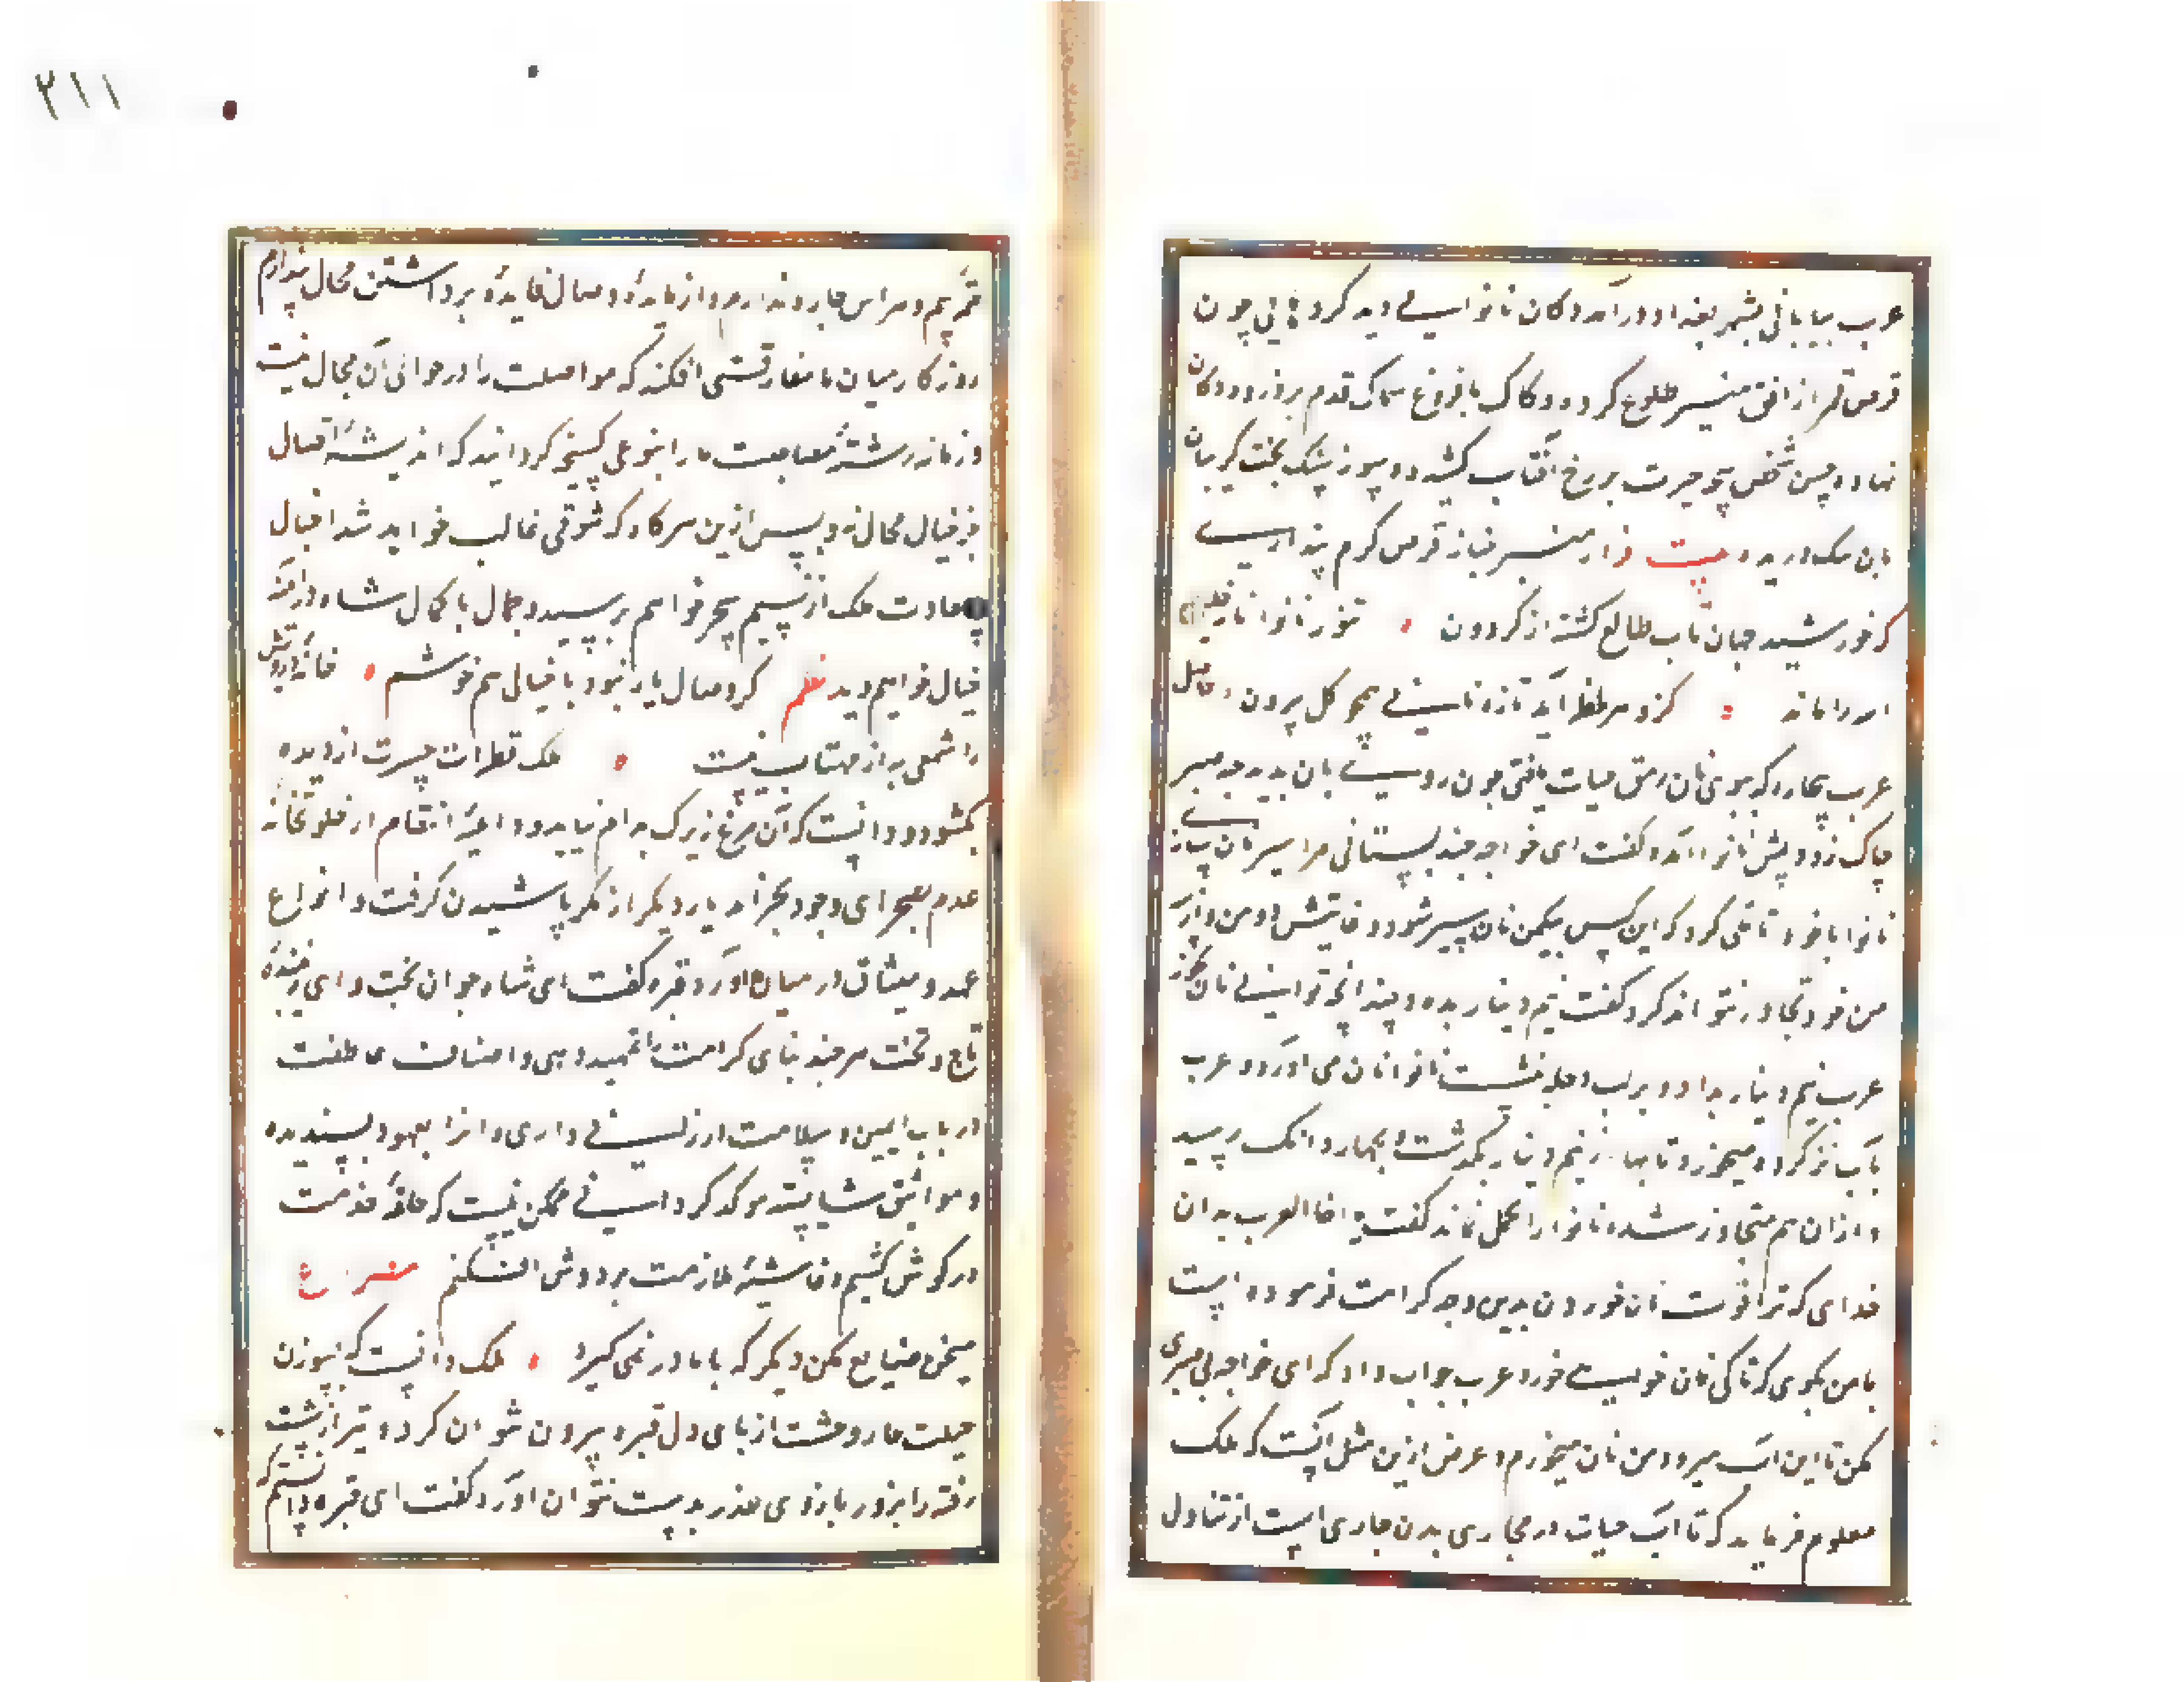 عرب بیابانی بشهر بغداد درآمد دکان نانوایی دید کردهایی چون
قرص قمر از افق منیر طلوع کرده و کاک با فروغ سماک قدم بر فرود دکان
نهاده چین شخص پنجه حیرت بر رخ آفتاب کشیده و سوزنک پخت گریبان
نان تنک دریده بیت فراز منبر خباز قرص گرم پنداری
که خورشید جهان تاب طالع گشته از گردون تنور نانوا نار خلیل
اسد را ماند کزو هر لحظه آید تازه نانی همچو گل بیرون
عرب بیچاره که ببوی نان رمق حیات یافتی چون روی نان بدید جامه صبر
چاک زد و پیش نانوا آمد و گفت ای خواجه چند بستانی مرا سیر نان سازی
نانوا با خود تأملی کرد که این کس بیکمن نان سیر شود و غایتش دو من و از سه
من خود تجاوز نتواند کرد گفت نیم دینار بده و چندانچه توانی نان بخور
عرب نیم دینار بداد و بر لب دجله نشست نانوا نان می آورد و عرب
بآب تر کرده میخورد تا بها از نیم دینار بگذشت و بچهار دانک رسید
و از آن هم متجاوز شد نانوا را تحمل نماند گفت یا اخا العرب بدان
خدای که ترا قوت نان خوردن بدین وجه کرامت فرموده است
با من بگوی که تا کی نان خواهی خورد عرب جواب داد که ای خواجه بی صبری
مکن تا این آب میرود من نان میخورم و غرض ازین مثل آنست که ملک
معلوم فرماید که تا آب حیات در مجاری بدن جاری است از تناول
۲۱۱
روزگار میان ما مفارقتی افکند که مواصلت را در حوالی آن مجال نیست
و زمانه رشته مصاحبت ما را بنوعی گسیخته گردانید که اندیشه اتصال
جز خیال محال نه و پس ازین هر گاه که شوقی غالب خواهد شد اخبار
سعادت ملک از نسیم سحر خواهم پرسید و جمال با کمال شاه در آینه
خیال خواهیم دید نظم گر وصال یار نبود با خیال هم خوشم خانه درویش
را شمعی به از مهتاب نیست ملک قطرات حسرت از دیده
بگشود و دانست که آن مرغ زیرک بدام نیاید و داعیه انتقام از خلوتخانه
عدم بصحرای وجود نخرامد بار دیگر از مکر پاشیدن گرفت و انواع
عهد و میثاق در میان آورد قبره گفت ای شاه جوان بخت و ای زیبنده
تاج و تخت هر چند بنای کرامت را تمهید دهی و اصناف عاطفت
در باب ایمن و سلامت ارزانی داری و آنرا بعهود پسندیده
و مواثیق شایسته موکد گردانی ممکن نیست که حلقه خدمت
در گوش کشیم و غاشیه ملازمت بر دوش افکنم مصراع
سخن ضایع مکن دیگر که با ما در نمی گیرد ملک دانست که بسوزن
حیلت خار وحشت از پای دل قبره بیرون نتوان کرد و تیر از شست
رفته را بزور بازوی عذر بدست نتوان آورد گفت ای قبره دانستم که